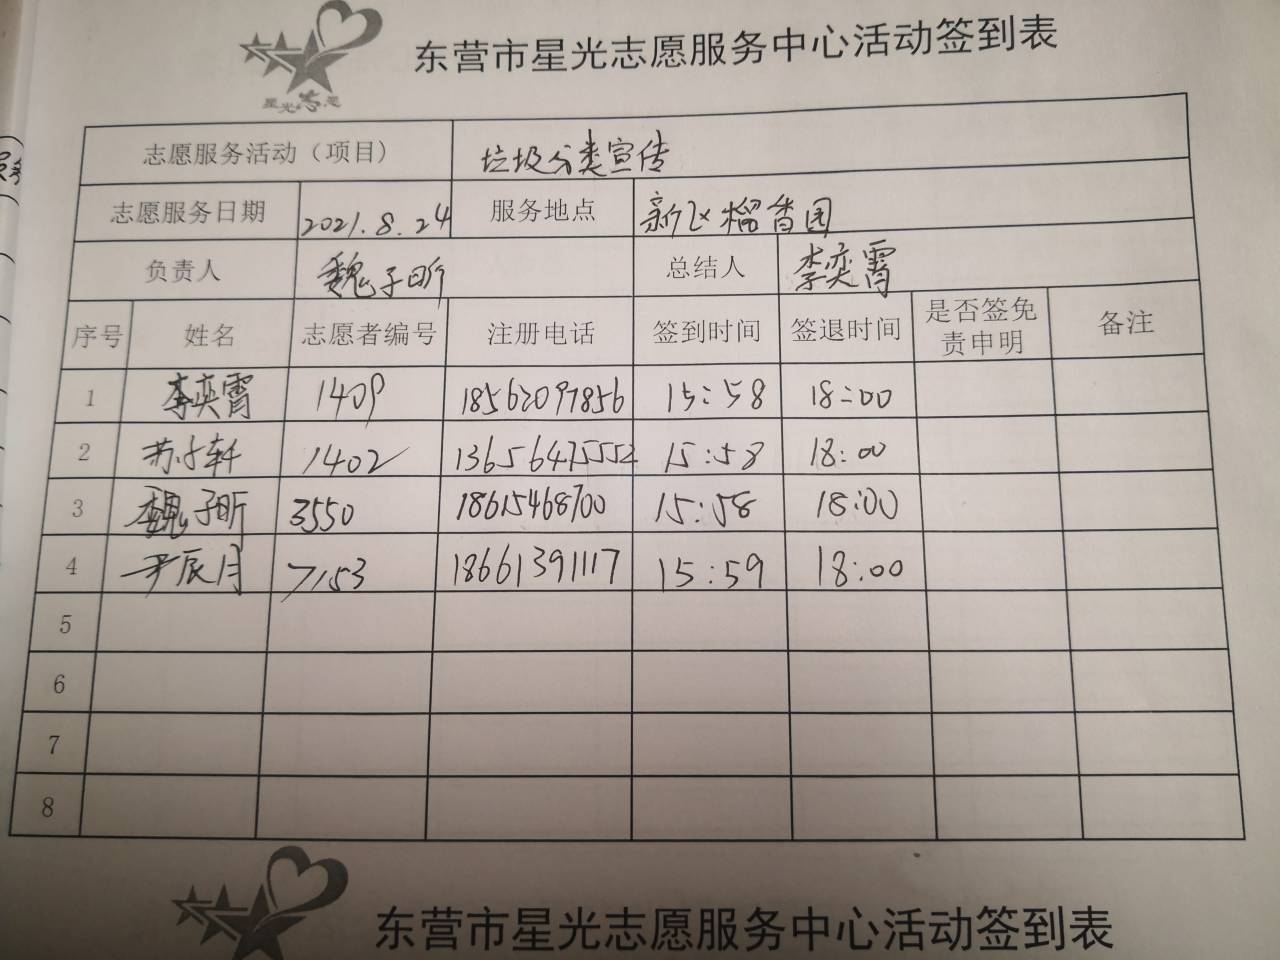 东营市星光志愿服务中心活动签到表
星光志愿
志愿服务活动（项目） 垃圾分类宣传
志愿服务日期 2021.8.24 服务地点 新区榴香园
负责人 魏子昕 总结人 李奕霄
序号 姓名 志愿者编号 注册电话 签到时间 签退时间 是否签免责申明 备注
1 李奕霄 1409 18562097856 15:58 18:00
2 苏子轩 1402 13656475552 15:58 18:00
3 魏子昕 3550 18615468700 15:58 18:00
4 尹辰月 7153 18661391117 15:59 18:00
5
6
7
8
东营市星光志愿服务中心活动签到表